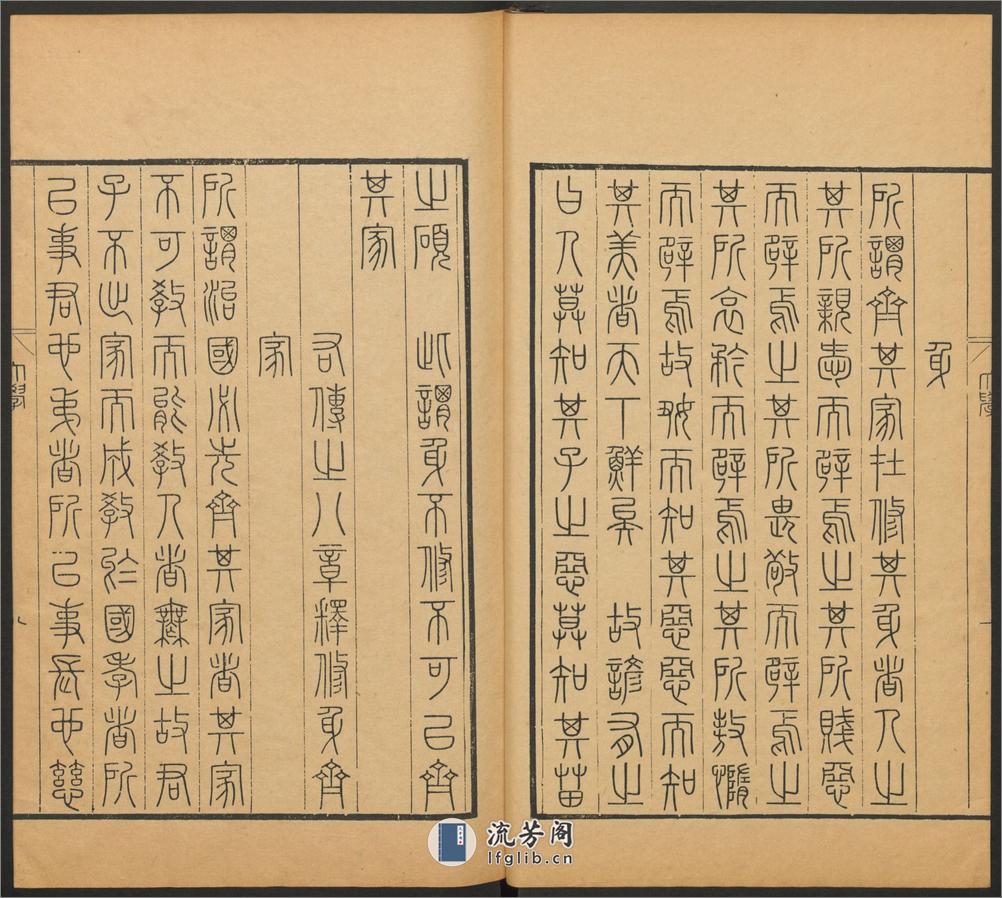 大學
身
所謂齊其家在修其身者人之
其所親愛而辟焉之其所賤惡
而辟焉之其所畏敬而辟焉之
其所哀矜而辟焉之其所敖惰
而辟焉故好而知其惡惡而知
其美者天下鮮矣 故諺有之
曰人莫知其子之惡莫知其苗
之碩 此謂身不修不可以齊
其家
右傳之八章釋修身齊
家
所謂治國必先齊其家者其家
不可教而能教人者無之故君
子不出家而成教於國孝者所
以事君也弟者所以事長也慈
大學
流芳阁
lfglib.cn